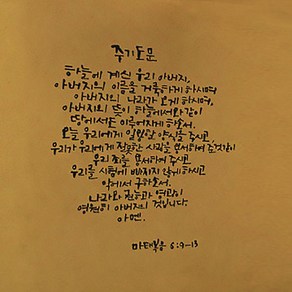 주기도문
하늘에 계신 우리 아버지,
아버지의 이름을 거룩하게 하시며
아버지의 나라가 오게 하시며,
아버지의 뜻이 하늘에서와 같이
땅에서도 이루어지게 하소서.
오늘 우리에게 일용할 양식을 주시고,
우리가 우리에게 잘못한 사람을 용서하여 준것같이
우리 죄를 용서하여 주시고,
우리를 시험에 빠지지 않게 하시고
악에서 구하소서.
나라와 권능과 영광이
영원히 아버지의 것입니다.
아멘.
마태복음 6:9-13